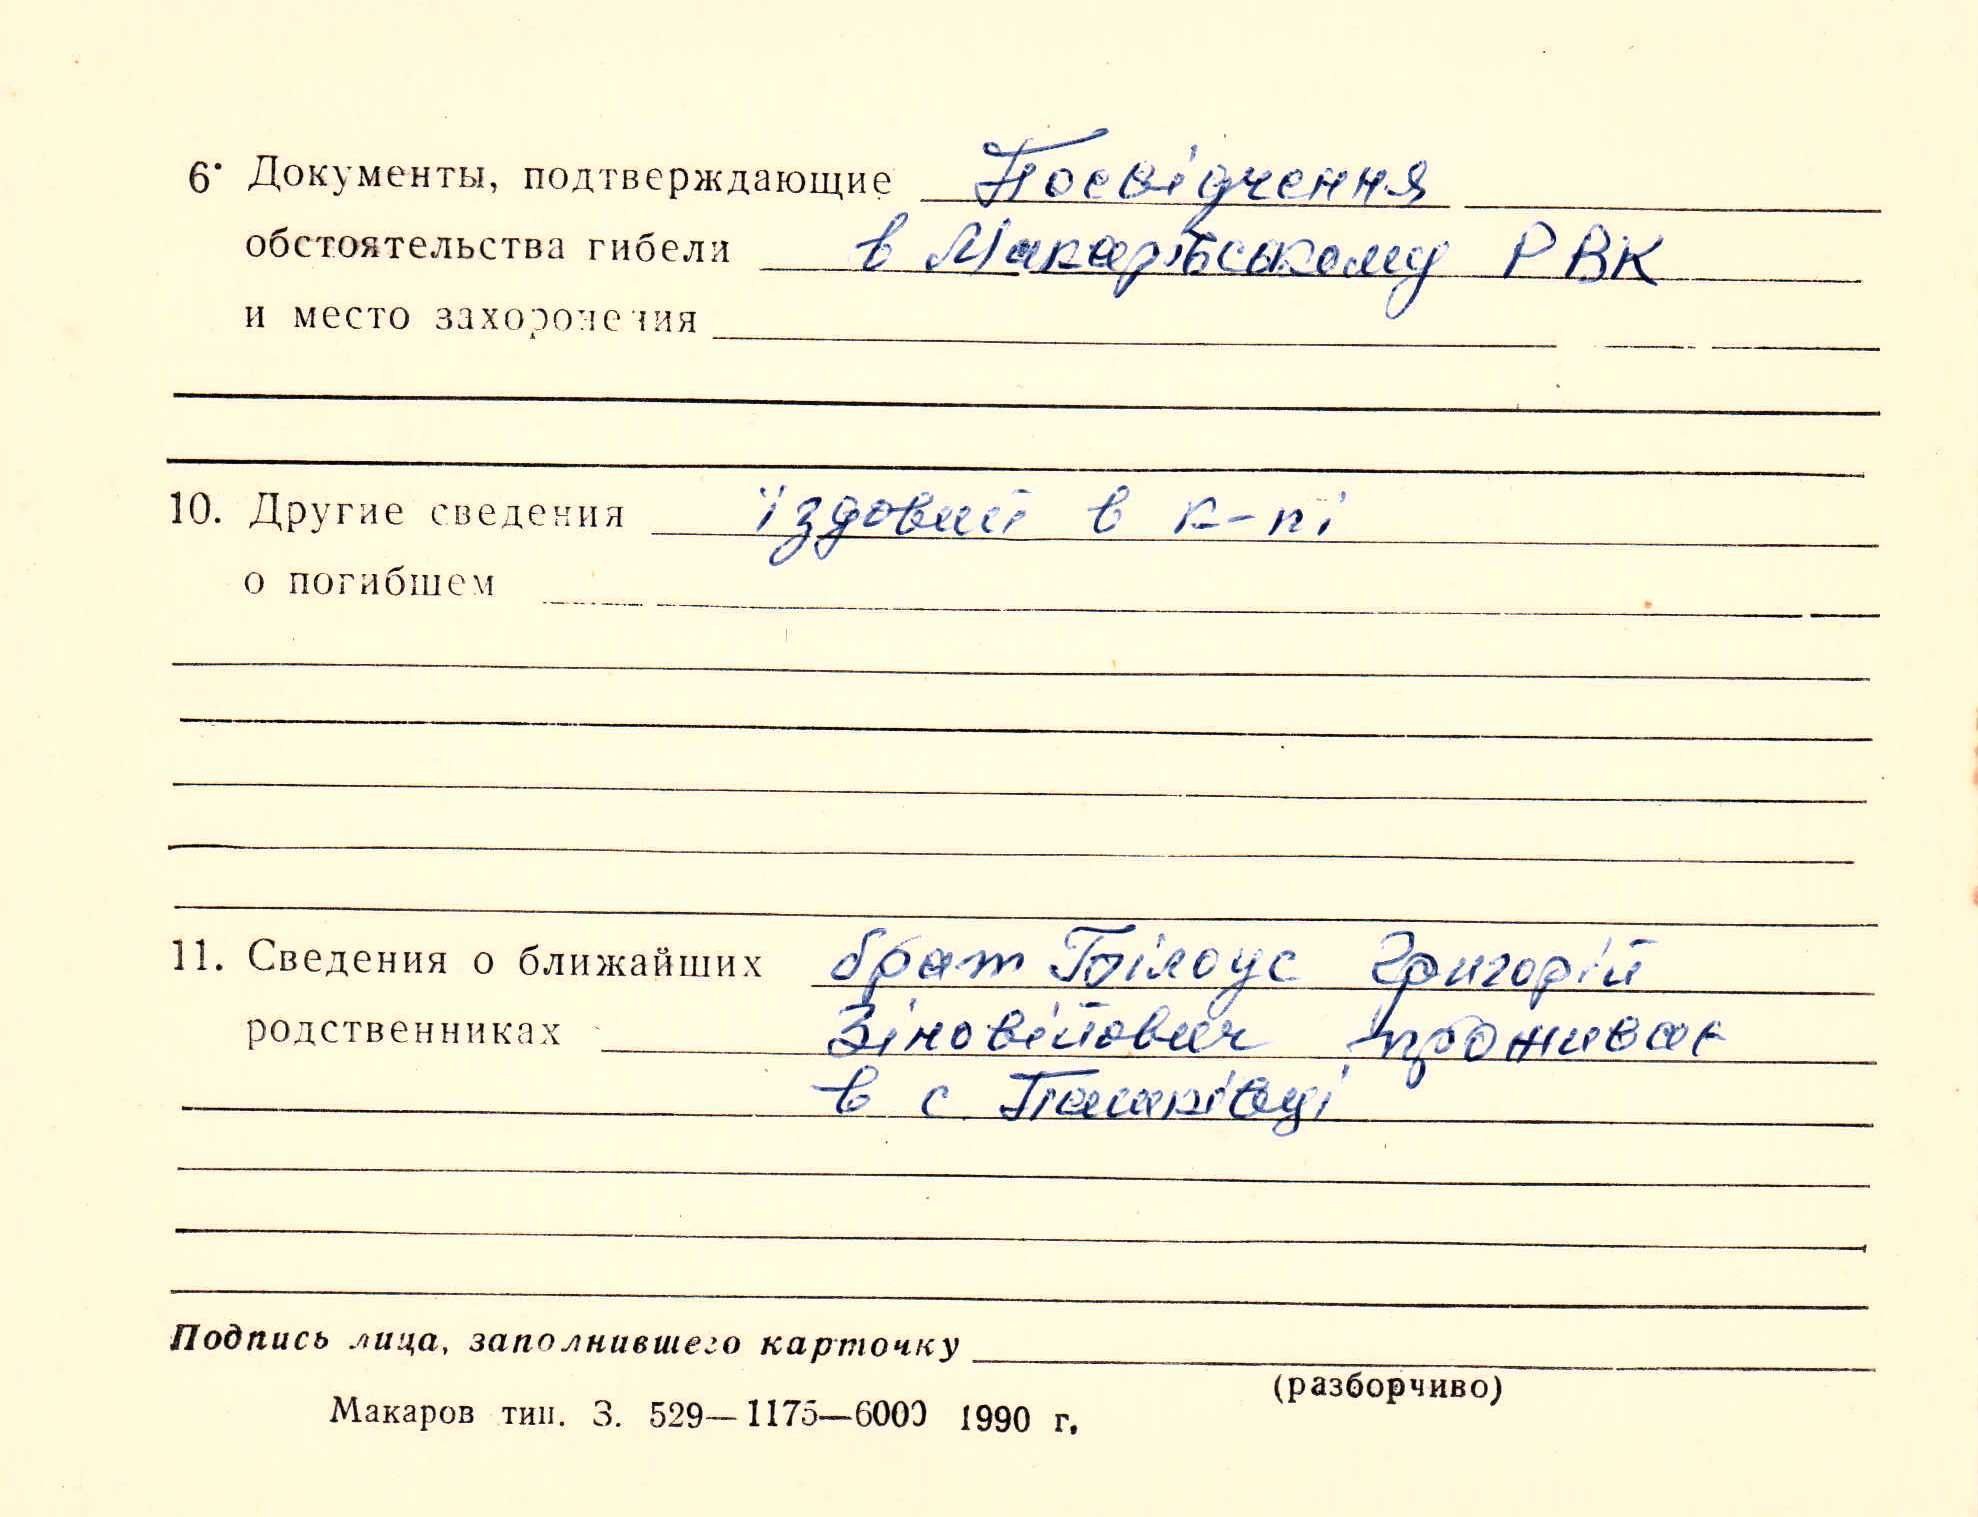 6. Документы, подтверждающие Посвідчення
обстоятельства гибели в Макарівському РВК
и место захоронения
10. Другие сведения їздовий в к-пі
о погибшем
11. Сведения о ближайших брат Білоус Григорій
родственниках Зіновійович проживає
в с.
Подпись лица, заполнившего карточку
(разборчиво)
Макаров тип. З. 529—1175—6000 1990 г.